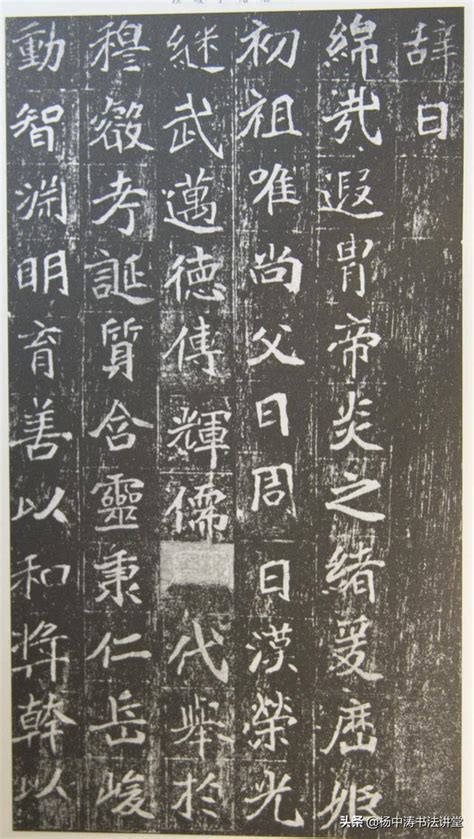 辞曰
綿哉遐胄帝炎之緒爰歷姬
初祖唯尚父曰周曰漢榮光
継武邁德傳輝儒代舉於
穆叡考誕質含靈秉仁岳峻
動智渊明育善以和獎幹以
头条 @杨中涛书法讲堂